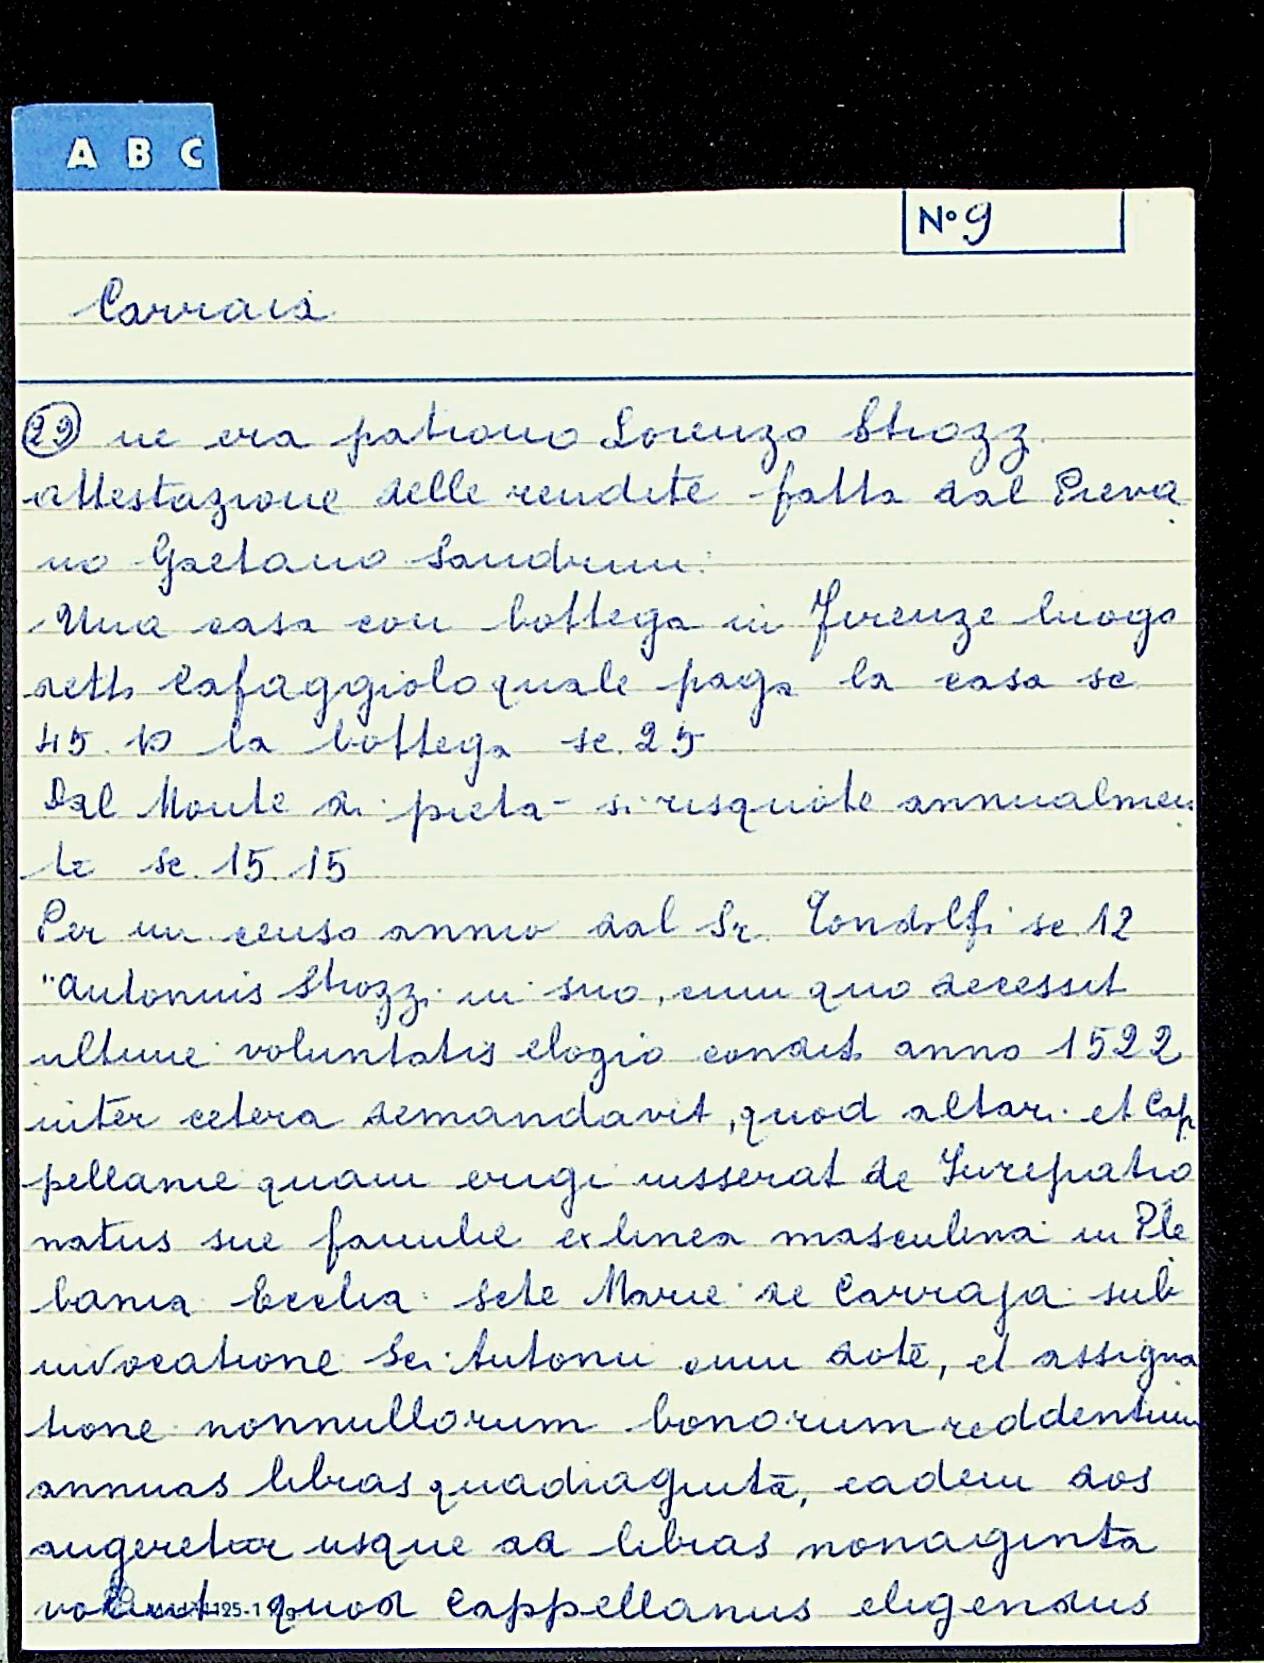 A B C
Nº 9
Carraia
22 ne era patrono Lorenzo Strozz.
attestazione delle rendite fatta dal Pieva
no Gaetano Sandrini.
Una casa con bottega in Firenze luogo
detto Cafaggiolo quale paga la casa sc
45. 10 la bottega sc. 25
Dal Monte di pieta - si risquote annualmen
te sc. 15. 15
Per un censo annuo dal Sr. Tondolfi sc. 12
"Antonius Strozzi in suo, cum quo decessit
ultime voluntatis elogio condit. anno 1522
inter cetera demandavit, quod altari et Cap
pellanie quam erigi iusserat de Jurepatro
natus sue familie ex linea masculina in Ple
bania Ecclia Scte Marie de Carraja sub
invocatione Sci Antonii cum dote, et assigna
tione nonnullorum bonorum reddentium
annuas libras quadraginta, eadem dos
augeretur usque ad libras nonaginta
quod Cappellanus eligendus